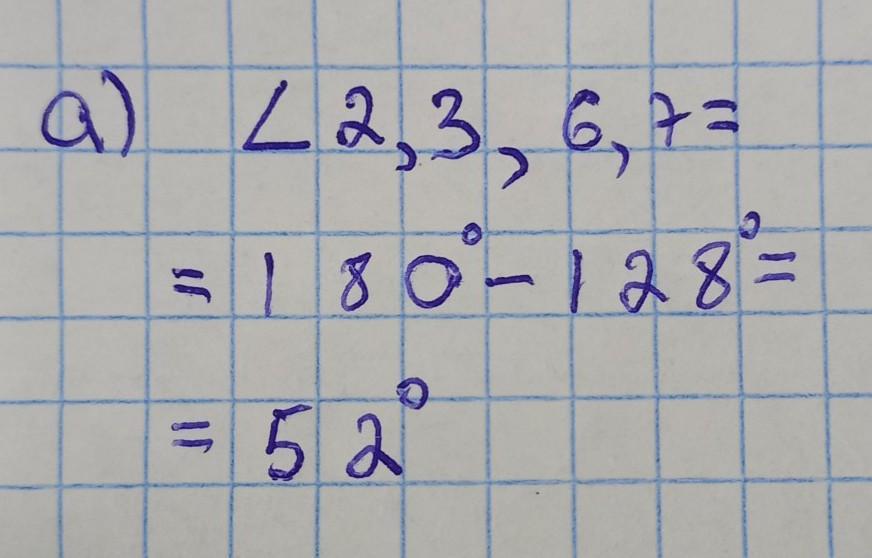 а) ∠2,3,6,7=
=180°-128°=
=52°